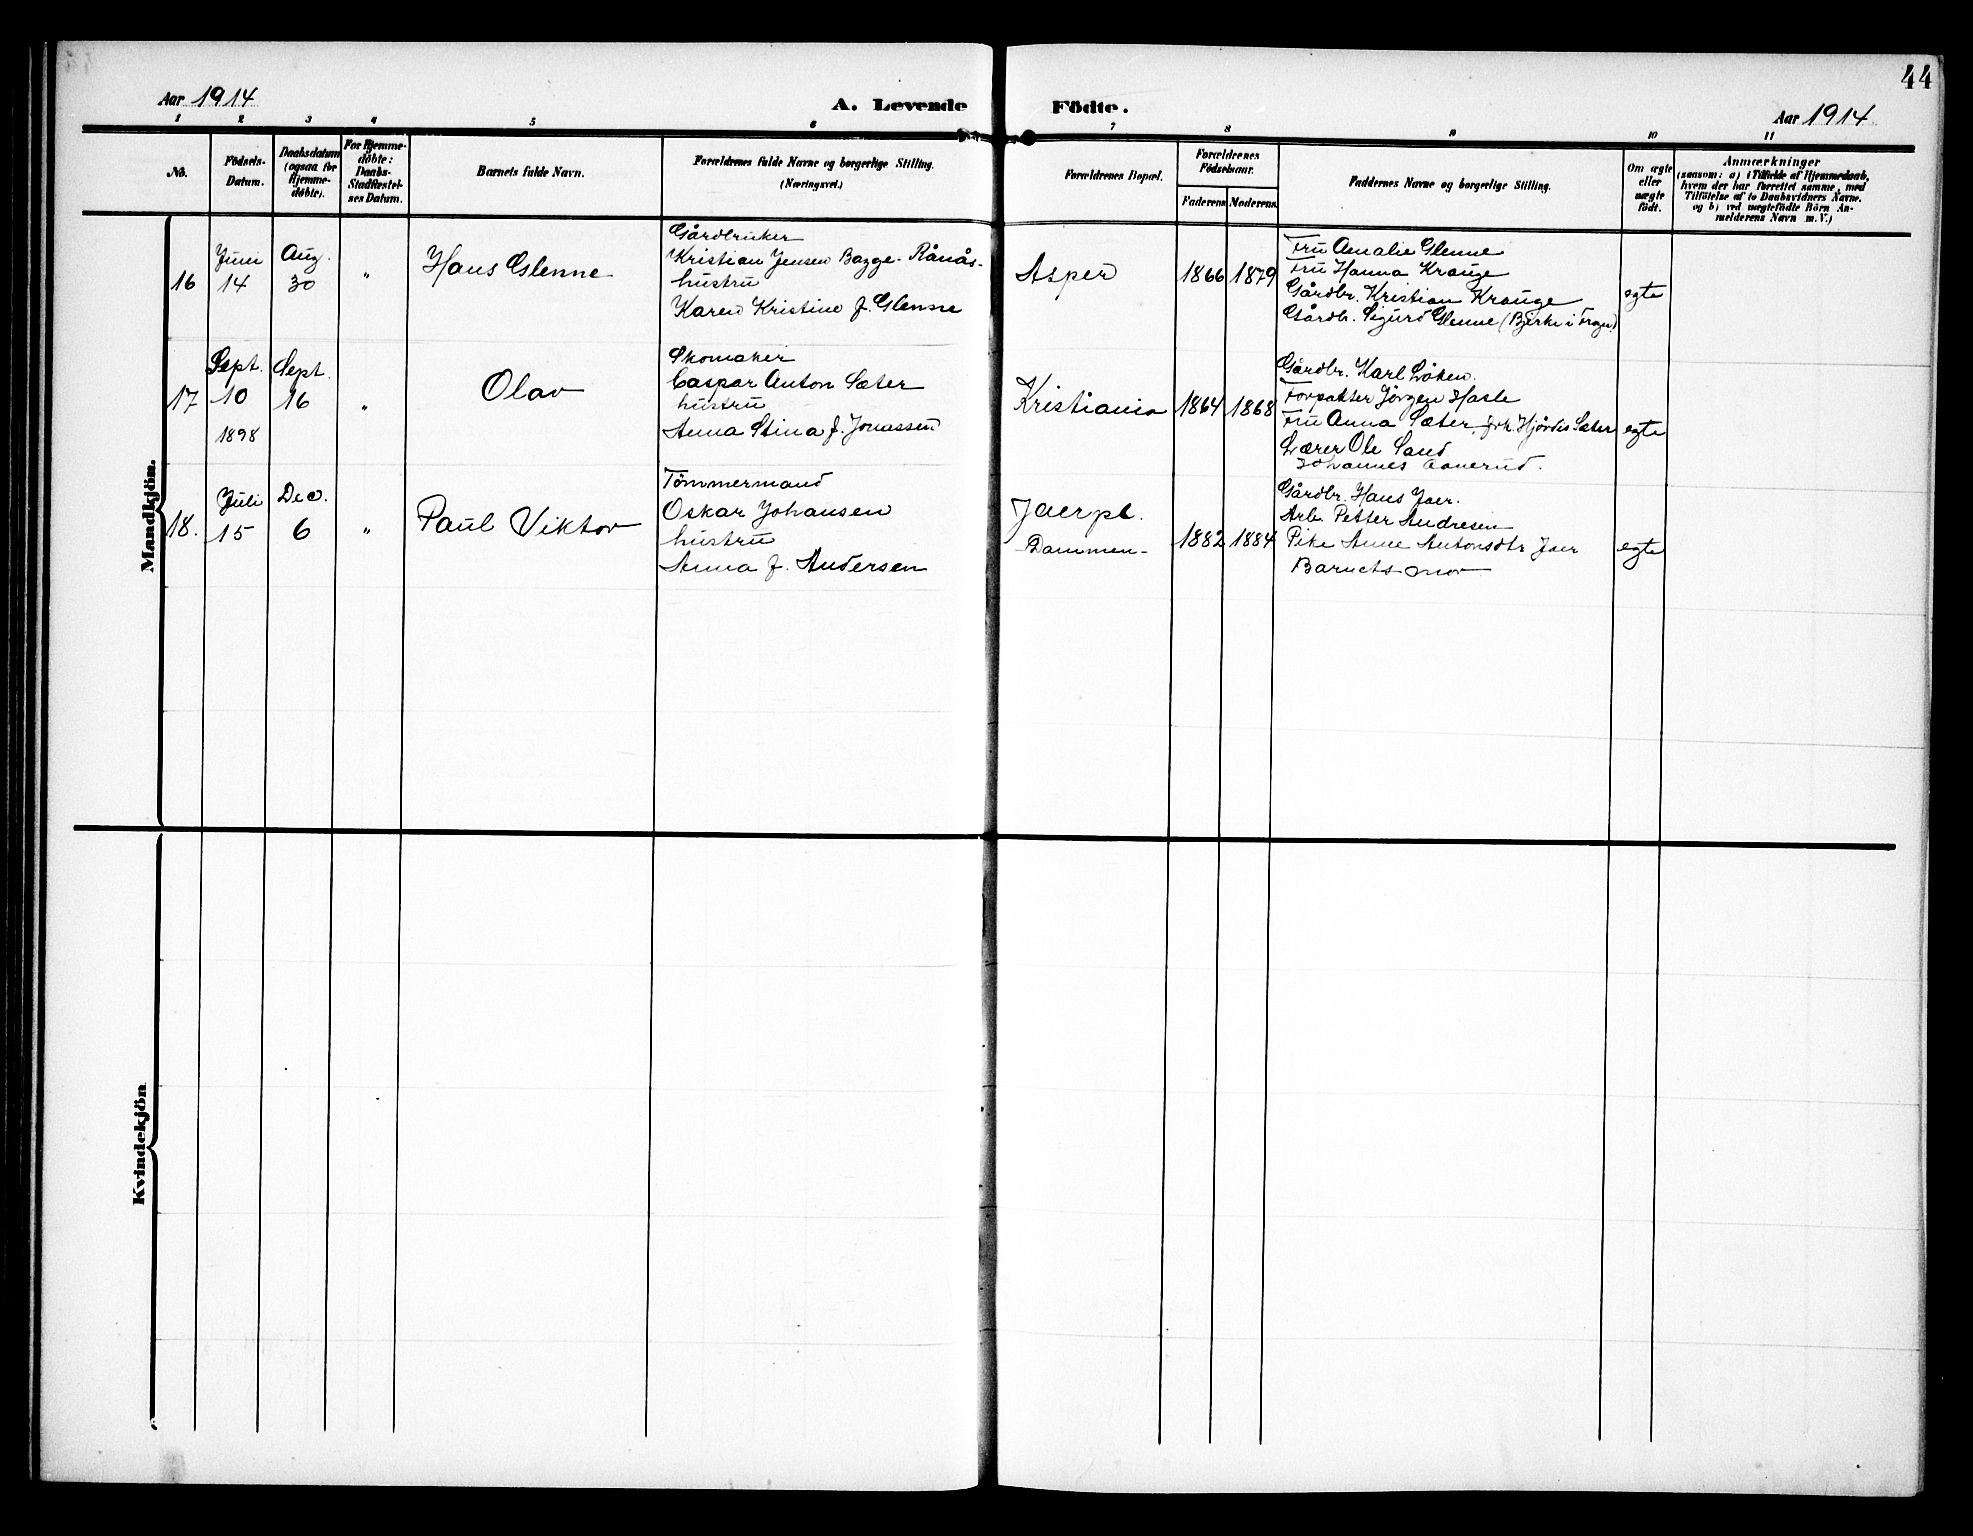 44
Aar 1914
A. Levende Födte.
Aar 1914
1 2 3 4 5 6 7 8 9 10 11
No.
Födsels-
Datum.
Daabsdatum
(ogsaa for
Hjemme-
döbte).
For Hjemme-
döbte:
Daabs-
Stadfæstel-
ses Datum.
Barnets fulde Navn.
Forældrenes fulde Navne og borgerlige Stilling.
(Næringsvei.)
Forældrenes Bopæl.
Forældrenes
Födselsaar.
Faderens Moderens.
Faddernes Navne og borgerlige Stilling.
Om ægte
eller
uægte
födt.
Anmærkninger
(saasom: a) i Tilfælde af Hjemmedaab,
hvem der har forrettet samme, med
Tilföielse af to Daabsvidners Navne.
og b) ved uægtefödte Börn An-
melderens Navn m. V.)
Mandkjön.
16
Juni
14
Aug.
30
"
Hans Glenne
Gårdbruker
Kristian Jensen Bagge-Rånås-
hustru
Karen Kristine f. Glenne
Asper
1866 1879
Fru Amalie Glenne
Fru Hanna Krauge
Gårdbr. Kristian Krauge
Gårdb. Sigurd Glenne (Bjerke i Frogn)
egte
17
Sept.
10
1898
Sept.
16
"
Olav
Skomaker
Caspar Anton Sæter
hustru
Anna Stina f. Jonassen
Kristiania
1864 1868
Gårdbr. Karl Löken.
Forpakter Jörgen Hasle
Fru Anna Sæter, frk. Hjördis Sæter
Lærer Ole Sand
Johannes Aanerud.
egte
18.
Juli
15
Dec.
6
"
Paul Viktor
Tömmermand
Oskar Johansen
hustru
Anna f. Andersen
Jaerpl.
Dammen-
1882 1884
Gårdbr. Hans Jaer.
Arb. Petter Andresen
Pike Anne Antonsdtr Jaer
Barnets mor
egte
Kvindekjön